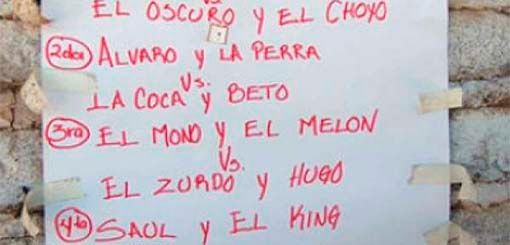 EL OSCURO y EL CHOYO
2da ALVARO y LA PERRA
Vs.
LA COCA y BETO
3ra EL MONO y EL MELON
Vs.
EL ZURDO y HUGO
SAUL y EL KING